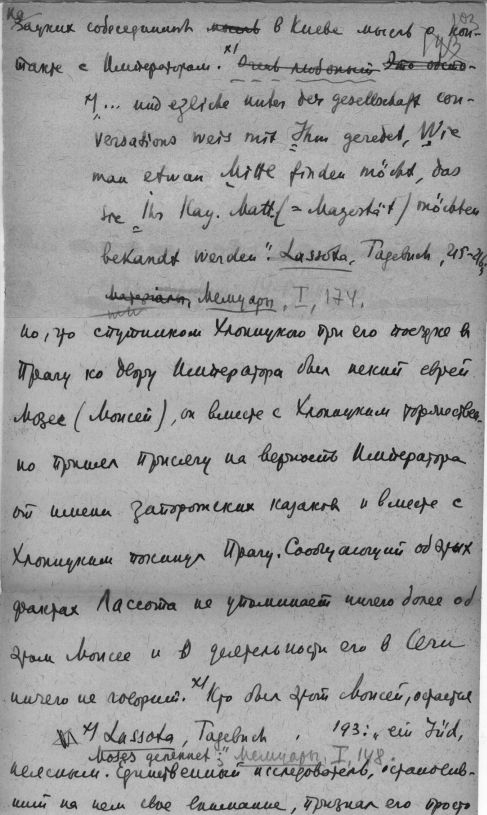 зацких собеседников мысль в Киеве мысль о кон-
такте с Императором. x) Это
x) ... und ezliche unter der gesellschaft con-
versations weis mit Ihm geredet, Wie
man etwan Mitte finden möcht, das
sie Ihr Kay. Matt. (= Mayestät) möchten
bekandt werden". Lassota, Tagebuch, 215-216.
материалы, Мемуары, I, 174.
но, что спутником Хлопицкого при его поездке в
Прагу ко двору Императора был некий еврей
Мозес (Моисей), он вместе с Хлопицким торжествен-
но принял присягу на верность Императора
от имени запорожских казаков и вместе с
Хлопицким покинул Прагу. Сообщающий об этих
фактах Лассота не упоминает ничего более об
этом Моисее и о деятельности его в Сечи
ничего не говорит. x) Кто был этот Моисей, остается
x) Lassota, Tagebuch, 193: "ein Jüd,
Moses genennet"; Мемуары, I, 148.
неясным. Единственный исследователь, остановив-
ший на нем свое внимание, признал его просто